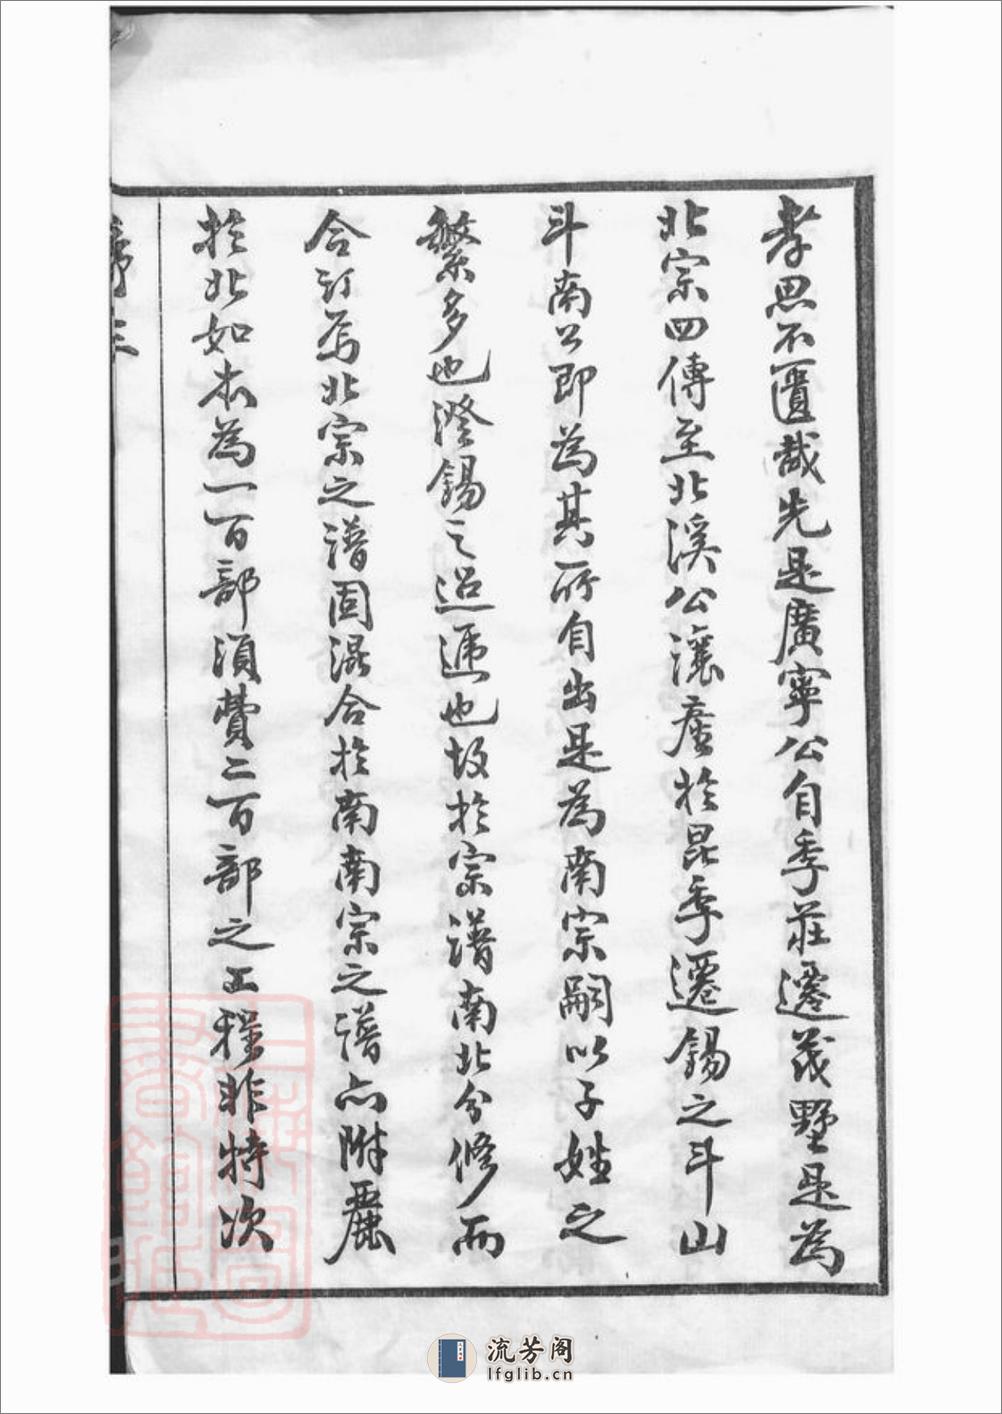 孝思不匱哉先是廣寧公自季莊遷茂墅是為
北宗四傳至北溪公讓產於昆季遷錫之斗山
斗南公即為其所自出是為南宗嗣以子姓之
繁多也澄錫之迢遞也故於宗譜南北分修而
合訂焉北宗之譜固混合於南南宗之譜亦附麗
於北如本為一百部須費二百部之工程非特次
序三
流芳阁
lfglib.cn